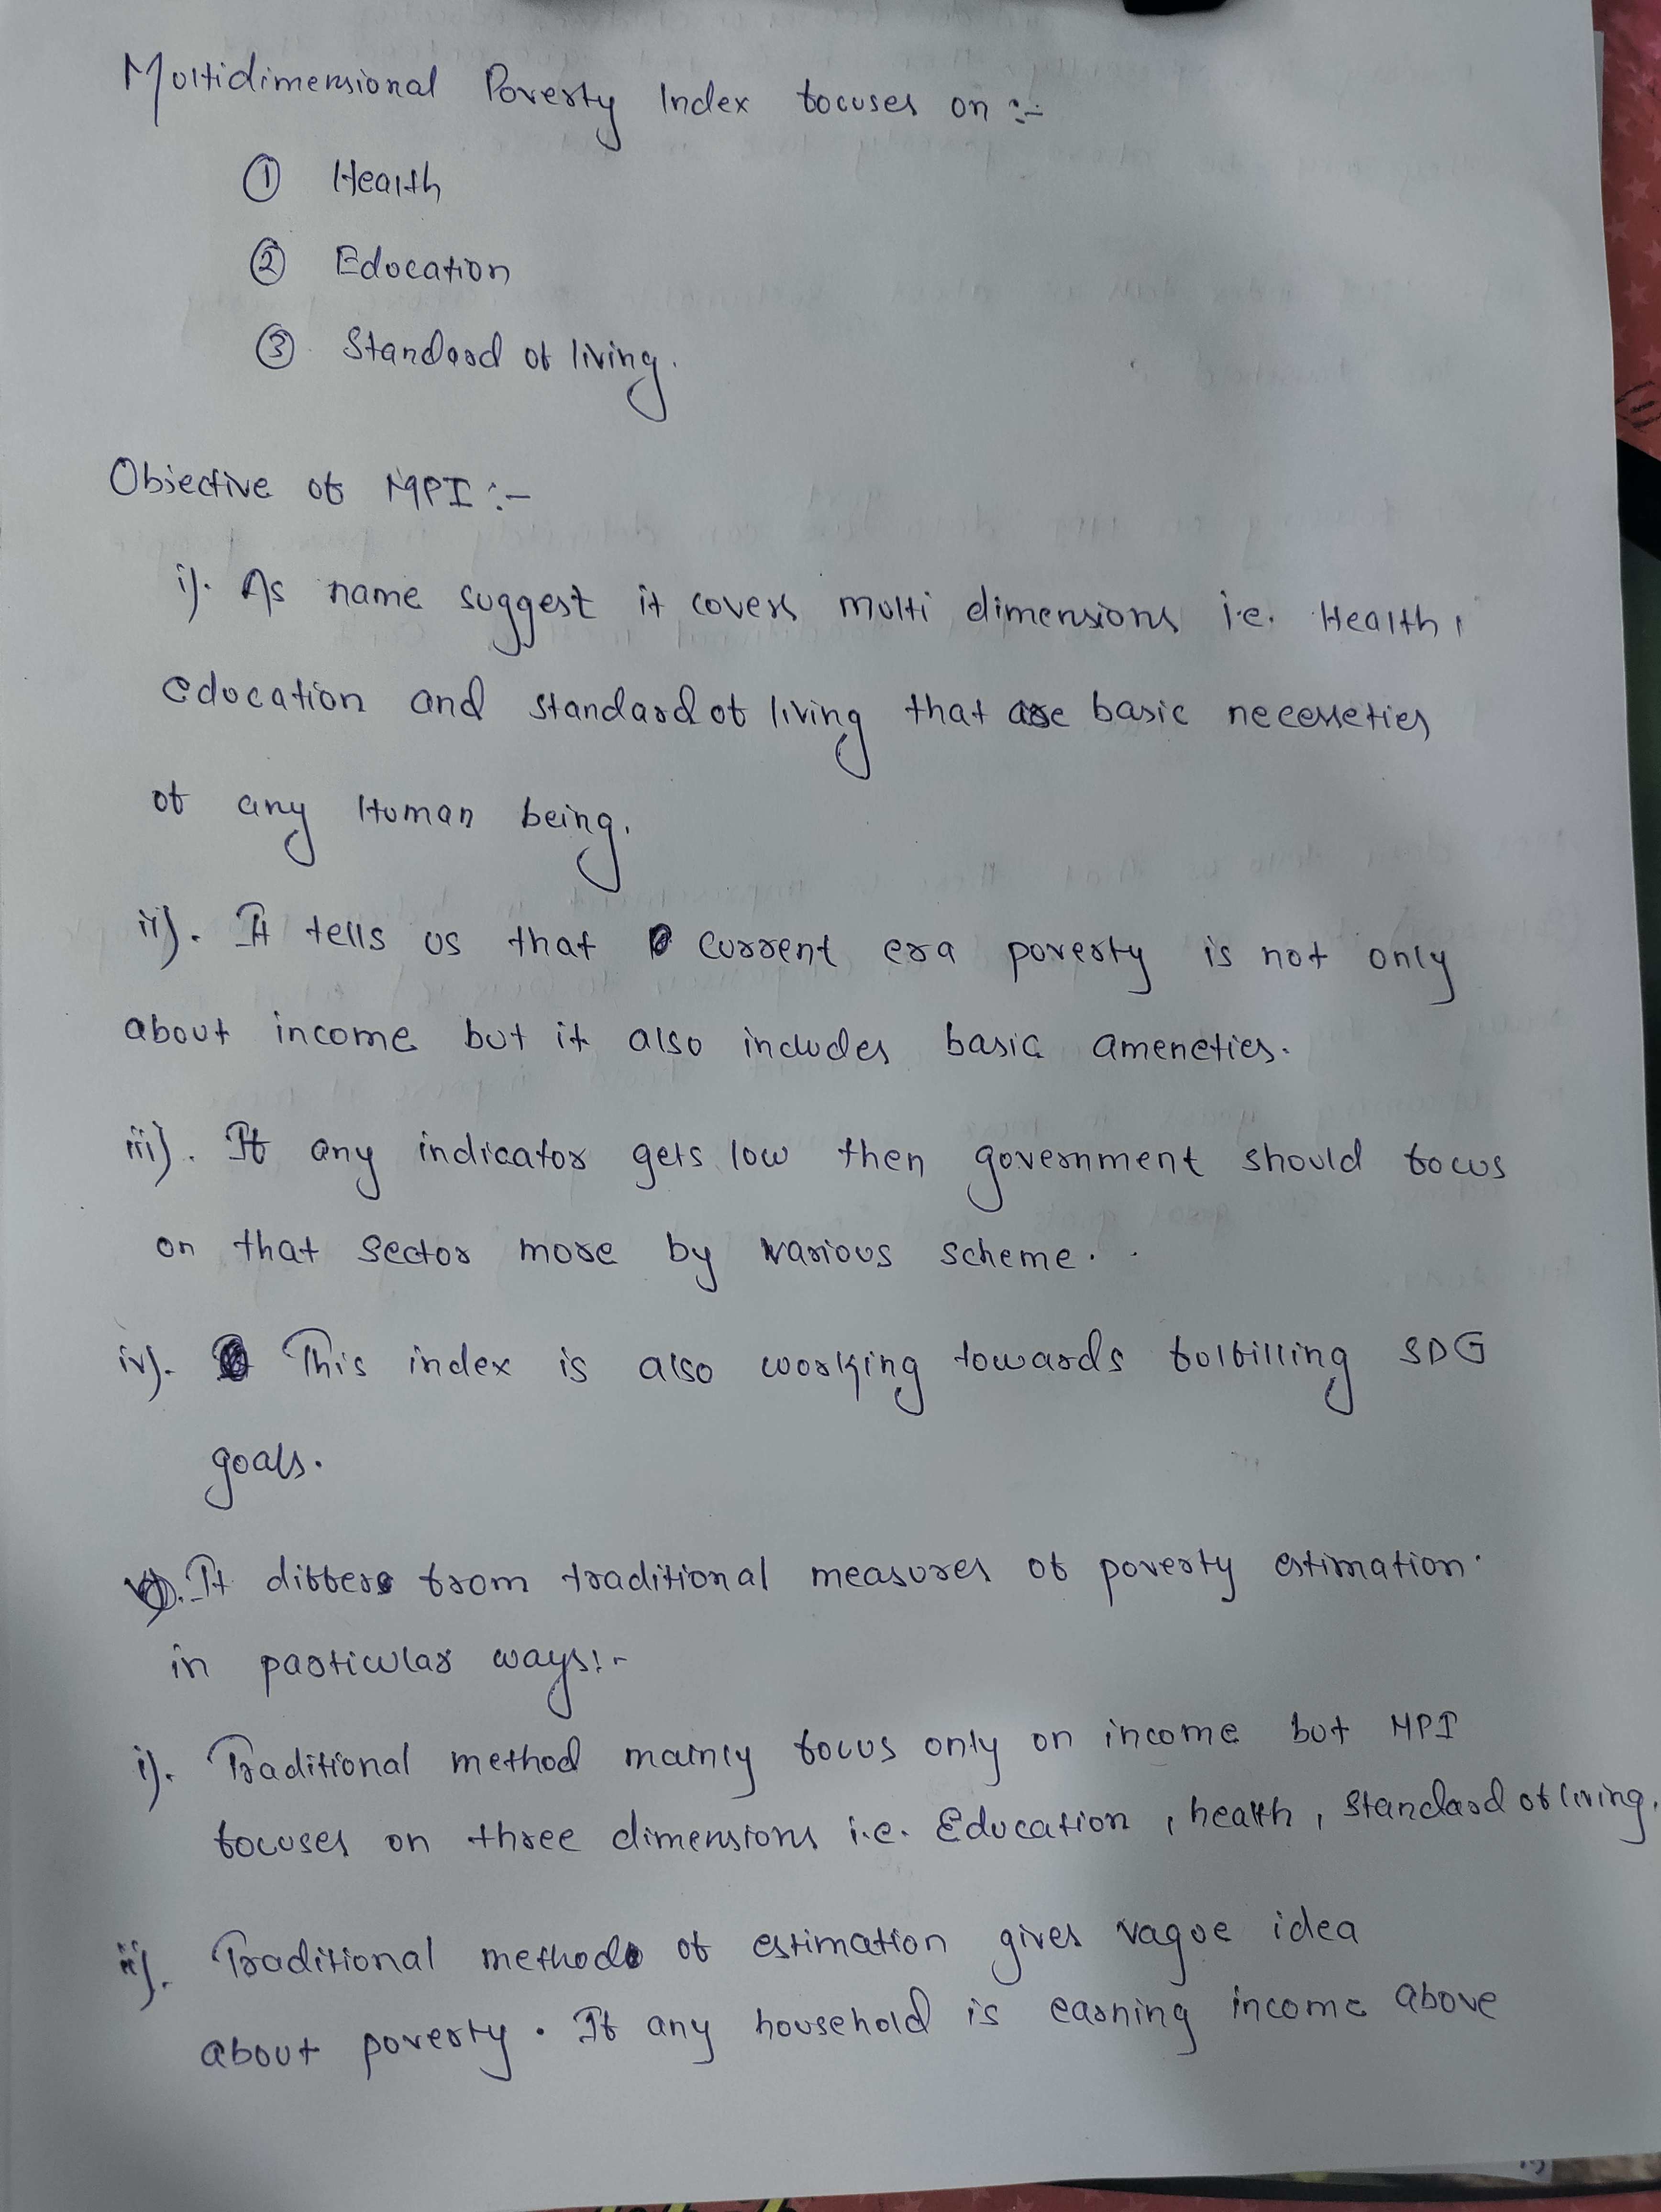 Multidimensional Poverty Index focuses on :-
① Health
② Education
③ Standard of living.
Objective of MPI :-
i). As name suggest it covers multi dimensions i.e. Health,
education and standard of living that are basic necesseties
of any Human being.
ii). It tells us that current era poverty is not only
about income but it also includes basic ameneties.
iii). If any indicator gets low then government should focus
on that sector more by various scheme.
iv). This index is also working towards fulfilling SDG
goals.
It differs from traditional measures of poverty estimation
in particular ways:-
i). Traditional method mainly focus only on income but MPI
focuses on three dimensions i.e. Education, health, standard of living.
ii). Traditional method of estimation gives vague idea
about poverty. If any household is earning income above